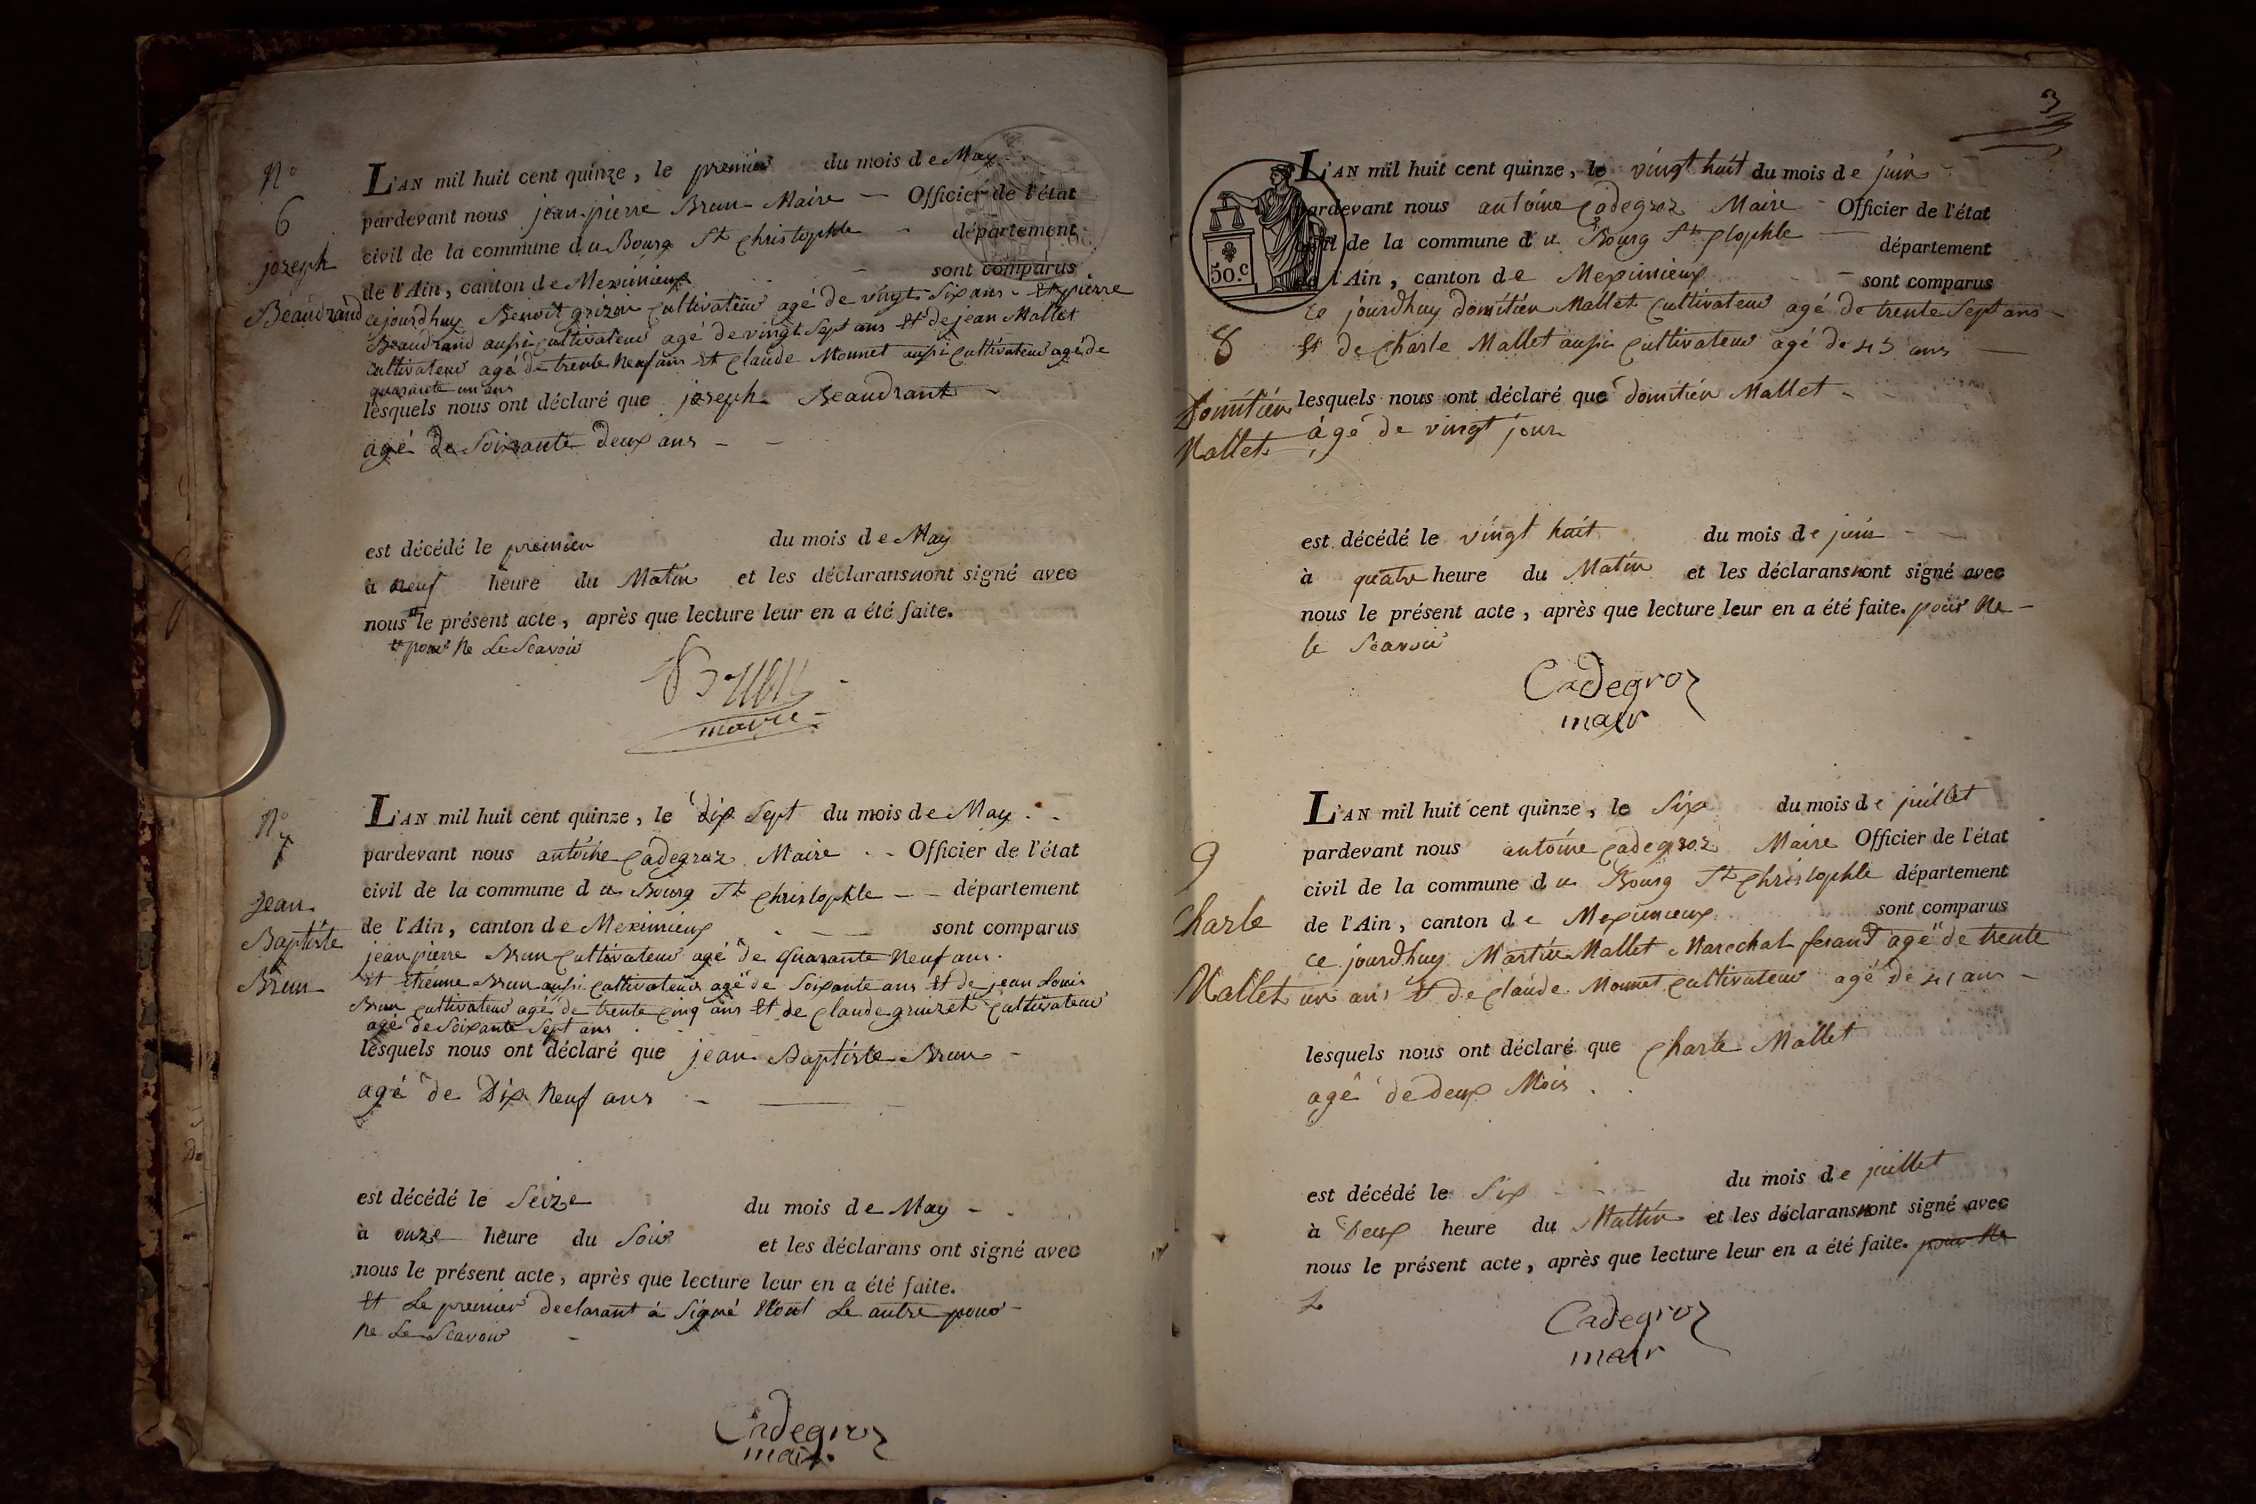 N.o
6
joseph
Beaudrand
L'AN mil huit cent quinze, le premier du mois de May
pardevant nous jean pierre Brun Maire — Officier de l'état
civil de la commune du Bourg St christophle - département
de l'Ain, canton de Meximieux — sont comparus
cejourdhuy Benoit grizon Cultivateur agé de vingt Six ans - Et pierre
Beaudrand aussi cultivateur agé de vingt Sept ans Et de jean Mallet
cultivateur agé de trente Neuf ans Et Claude Monnet aussi Cultivateur agé de
quarante un ans
lesquels nous ont déclaré que joseph Beaudrant -
agé de Soixante deux ans - -
est décédé le premier du mois de May
à neuf heure du Matin et les déclarans nont signé avec
nous le présent acte, après que lecture leur en a été faite.
pour Ne Le Scavoir
Brun
maire
N.o
7
jean
Baptiste
Brun
L'AN mil huit cent quinze, le dix Sept du mois de May - -
pardevant nous antoine Cadegroz Maire - - Officier de l'état
civil de la commune du Bourg St Christophle - - département
de l'Ain, canton de Meximieux - — sont comparus
jean pierre Brun Cultivateur agé de Quarante Neuf ans.
Et Etienne Brun aussi Cultivateur agé de Soixante ans Et de jean Louis
Brun cultivateur agé de trente Cinq ans Et de Claude gruizet Cultivateur
agé de Soixante Sept ans
lesquels nous ont déclaré que jean Baptiste Brun -
agé de Dix Neuf ans - —
est décédé le Seize du mois de May - -
à onze heure du Soir et les déclarans ont signé avec
nous le présent acte, après que lecture leur en a été faite.
Et Le premier declarant à Signé Non Le autre pour -
Ne Le Scavoir -
Cadegroz
mair.
3
50.c
8
Domitien
Mallet
L'AN mil huit cent quinze, le vingt huit du mois de juin -
pardevant nous antoine Cadegroz Maire - Officier de l'état
civil de la commune du Bourg St Clophle — département
de l'Ain, canton de Meximieux - sont comparus
ce jourdhuy domitien Mallet Cultivateur agé de trente Sept ans -
Et de Charle Mallet aussi Cultivateur agé de 45 ans —
lesquels nous ont déclaré que domitien Mallet -
àgé de vingt jour
est décédé le vingt huit du mois de juin -
à quatre heure du Matin et les déclarans nont signé avec
nous le présent acte, après que lecture leur en a été faite. pour Ne -
le Scavoir
Cadegroz
mair
9
Charle
Mallet
L'AN mil huit cent quinze, le Six du mois de juillet
pardevant nous antoine Cadegroz Maire Officier de l'état
civil de la commune du Bourg St Christophle département
de l'Ain, canton de Meximieux sont comparus
ce jourdhuy Martin Mallet Marechal ferand agé de trente
un ans Et de Claude Monnet Cultivateur agé de 41 ans -
lesquels nous ont déclaré que Charle Mallet
agé de deux Mois.
est décédé le Six du mois de juillet
à Deux heure du Mattin et les déclarans nont signé avec
nous le présent acte, après que lecture leur en a été faite. pour Ne
Le
Cadegroz
mair